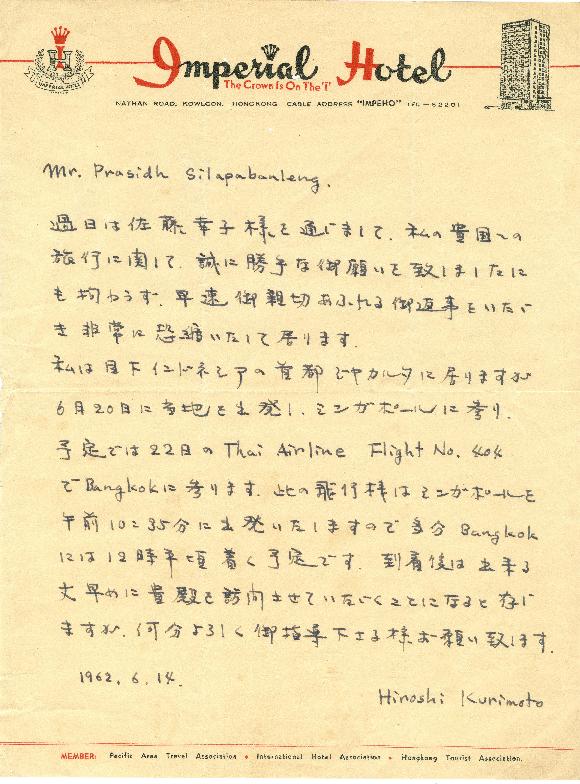 Imperial Hotel
The Crown Is On The "I"
NATHAN ROAD, KOWLOON, HONGKONG CABLE ADDRESS "IMPEHO" TEL — 62201
Mr. Prasidh Silapabanleng.
過日は佐藤幸子様を通じまして、私の貴国への
旅行に関して、誠に勝手な御願いを致しましたに
も拘わらず、早速御親切あふれる御返事をいただ
き非常に恐縮いたして居ります。
私は目下インドネシアの首都ジャカルタに居りますが
6月20日に当地を出発し、シンガポールに参り、
予定では22日の Thai Airline Flight No. 404
でBangkokに参ります。此の飛行機はシンガポールを
午前10:35分に出発いたしますので多分 Bangkok
には12時半頃着く予定です。到着後は出来る
丈早めに貴殿を訪問させていただくことになると存じ
ますが、何分よろしく御指導下さる様お願い致します。
1962. 6. 14.
Hiroshi Kurimoto
MEMBER: Pacific Area Travel Association • International Hotel Association • Hongkong Tourist Association.